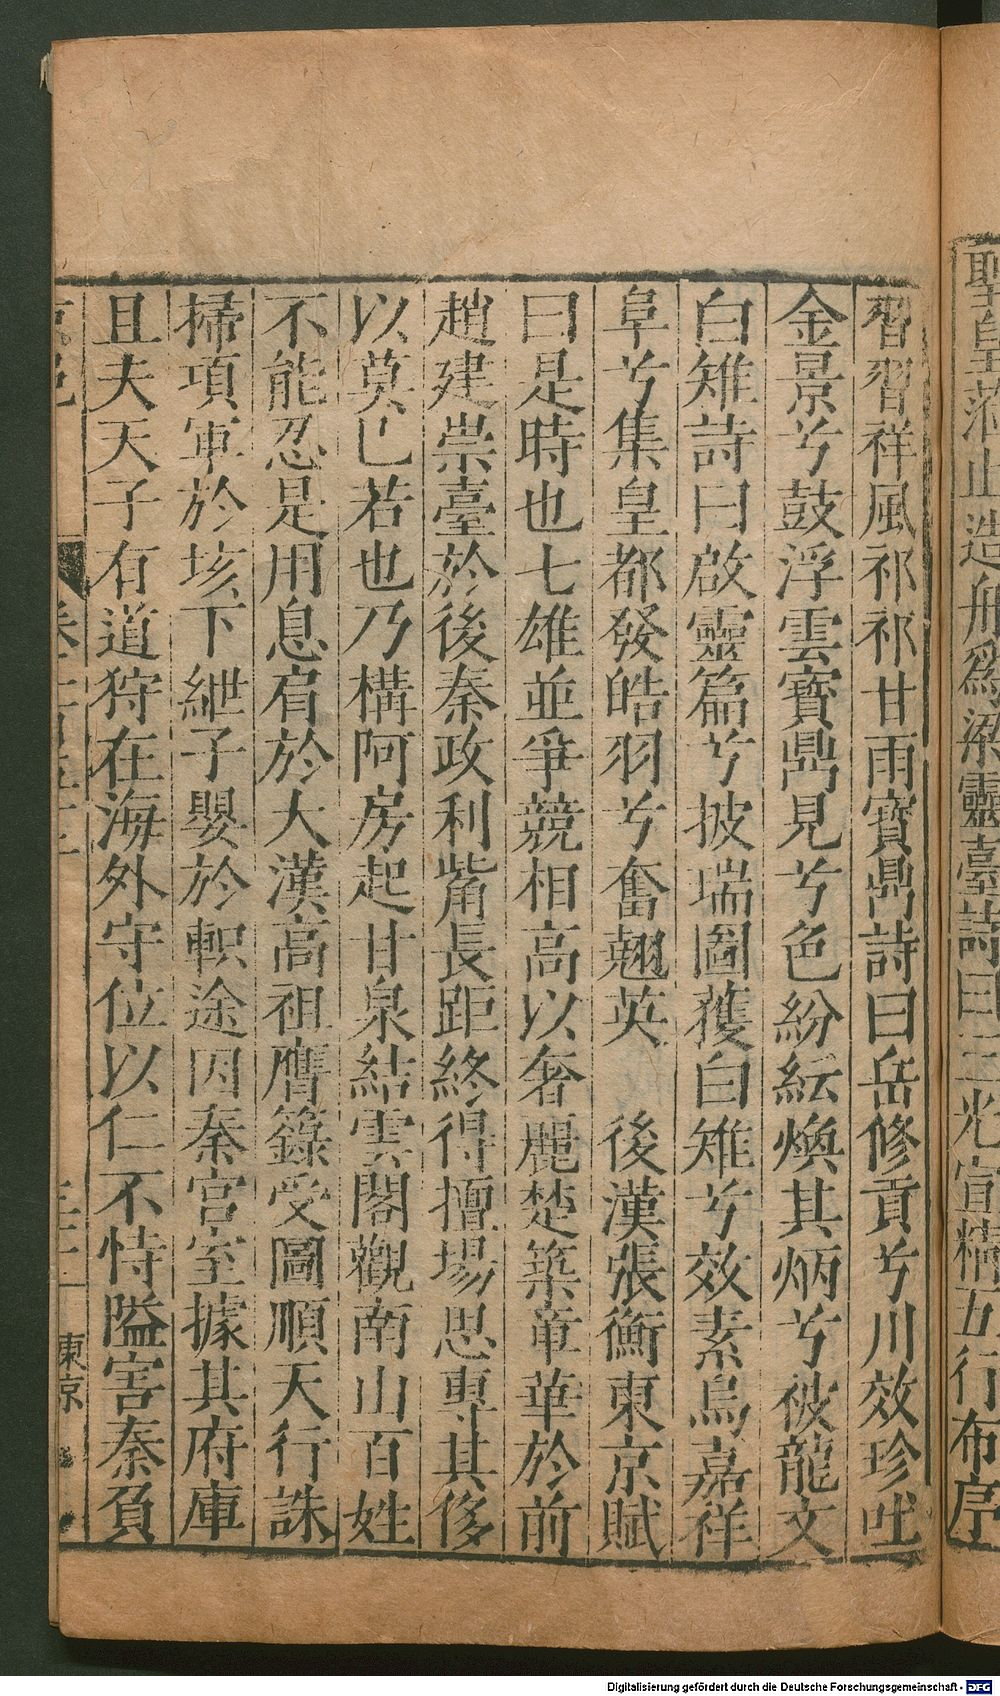 聖皇蒞止造舟爲梁靈臺詩曰三光宣精五行布序
習習祥風祁祁甘雨寶鼎詩曰岳修貢兮川效珍吐
金景兮鼓浮雲寶鼎見兮色紛紜煥其炳兮被龍文
白雉詩曰啟靈篇兮披瑞圖獲白雉兮效素烏嘉祥
阜兮集皇都發皓羽兮奮翹英 後漢張衡東京賦
曰是時也七雄並爭競相高以奢麗楚築章華於前
趙建崇臺於後秦政利觜長距終得擅場思專其侈
以莫己若也乃構阿房起甘泉結雲閣觀南山百姓
不能忍是用息肩於大漢高祖膺籙受圖順天行誅
掃項軍於垓下紲子嬰於軹途因秦宮室據其府庫
且夫天子有道狩在海外守位以仁不恃隘害秦負
東京
Digitalisierung gefördert durch die Deutsche Forschungsgemeinschaft - DFG